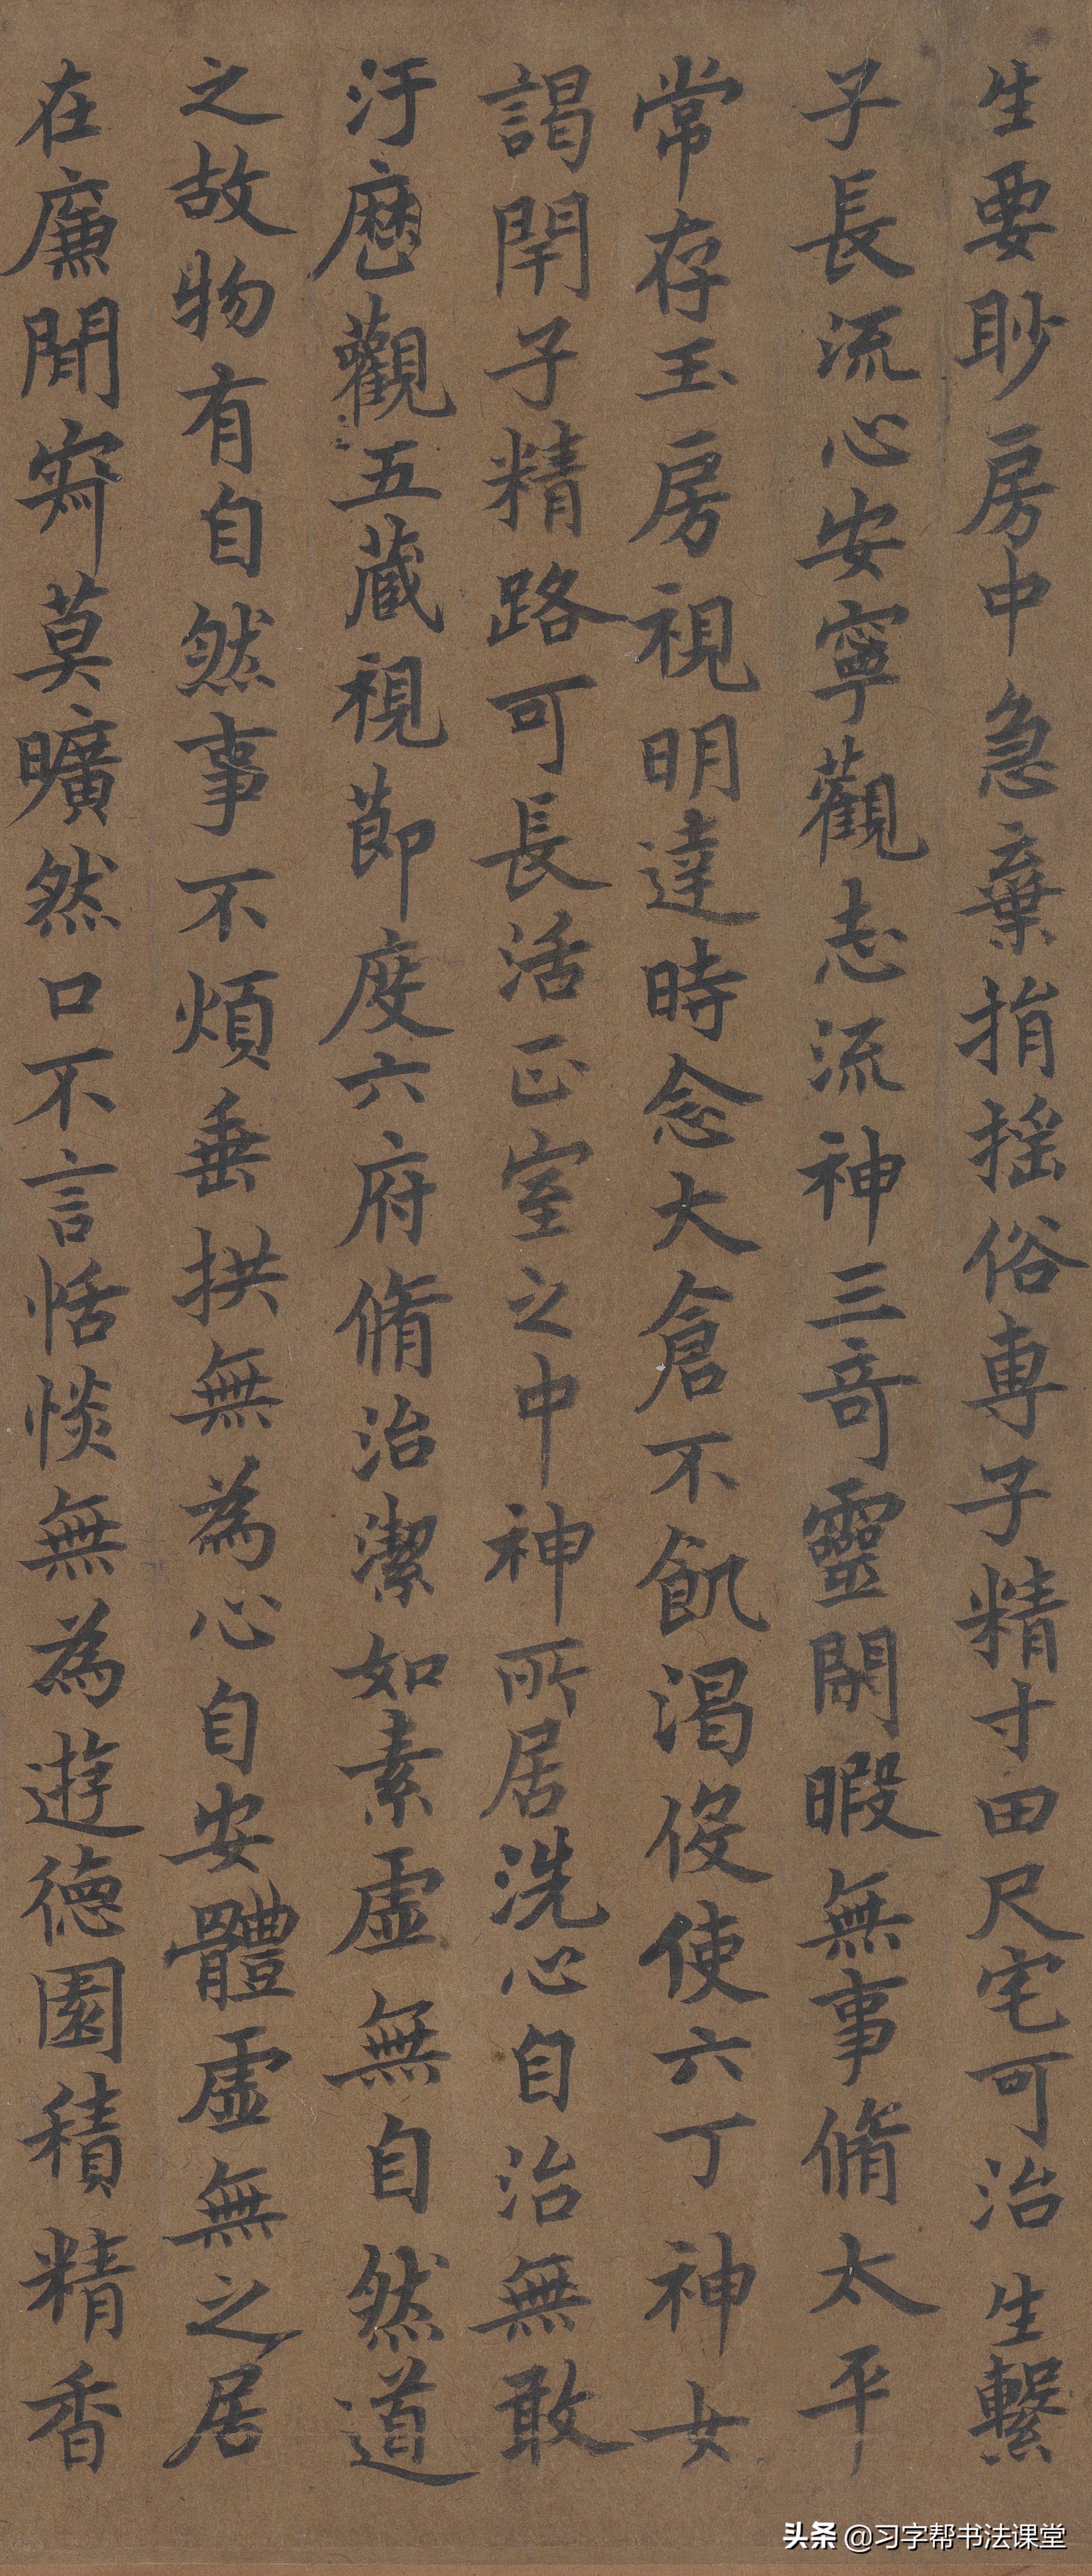 生要眇房中急棄捐搖俗專子精寸田尺宅可治生繫
子長流心安寧觀志流神三奇靈閑暇無事脩太平
常存玉房視明達時念大倉不飢渴役使六丁神女
謁閇子精路可長活正室之中神所居洗心自治無敢
汙歷觀五藏視節度六府脩治潔如素虛無自然道
之故物有自然事不煩垂拱無為心自安體虛無之居
在廉間寂莫曠然口不言恬惔無為遊德園積精香
头条 @习字帮书法课堂